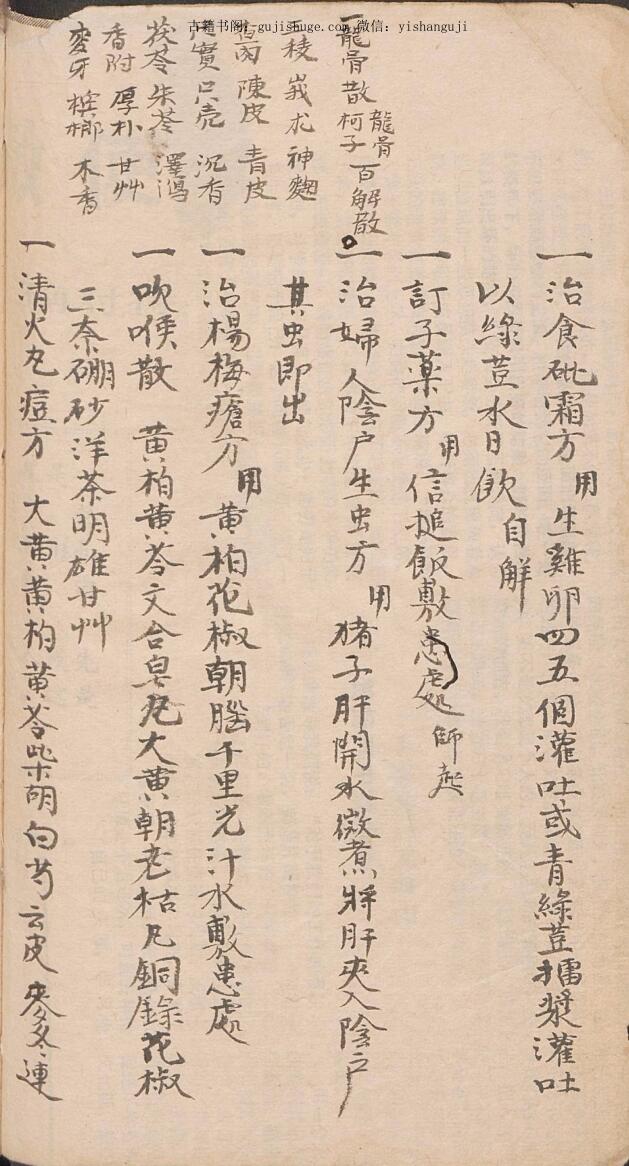 古籍书阁：gujishuge.com 微信：yishanguji
一龍骨散 龍骨 柯子 百解散
稜 莪术 神麴
肉 陳皮 青皮
實 只壳 沉香
茯苓 朱苓 澤瀉
香附 厚朴 甘艸
麥牙 檳榔 木香
一治食砒霜方用生雞卵四五個灌吐或青綠荳擂漿灌吐
以綠荳水日飲自解
一訂子藥方用信搥飯敷患處師起
一治婦人陰户生虫方用猪子肝開水微煮將肝夾入陰户
其虫即出
一治楊梅瘡方用黄柏花椒朝腦千里光汁水敷患處
一吹喉散 黄柏黄芩文合皂凡大黄朝老枯凡銅錄花椒
三奈硼砂洋茶明雄甘艸
一清火丸痘方 大黄黄柏黄芩柴胡白芍云皮麥冬連